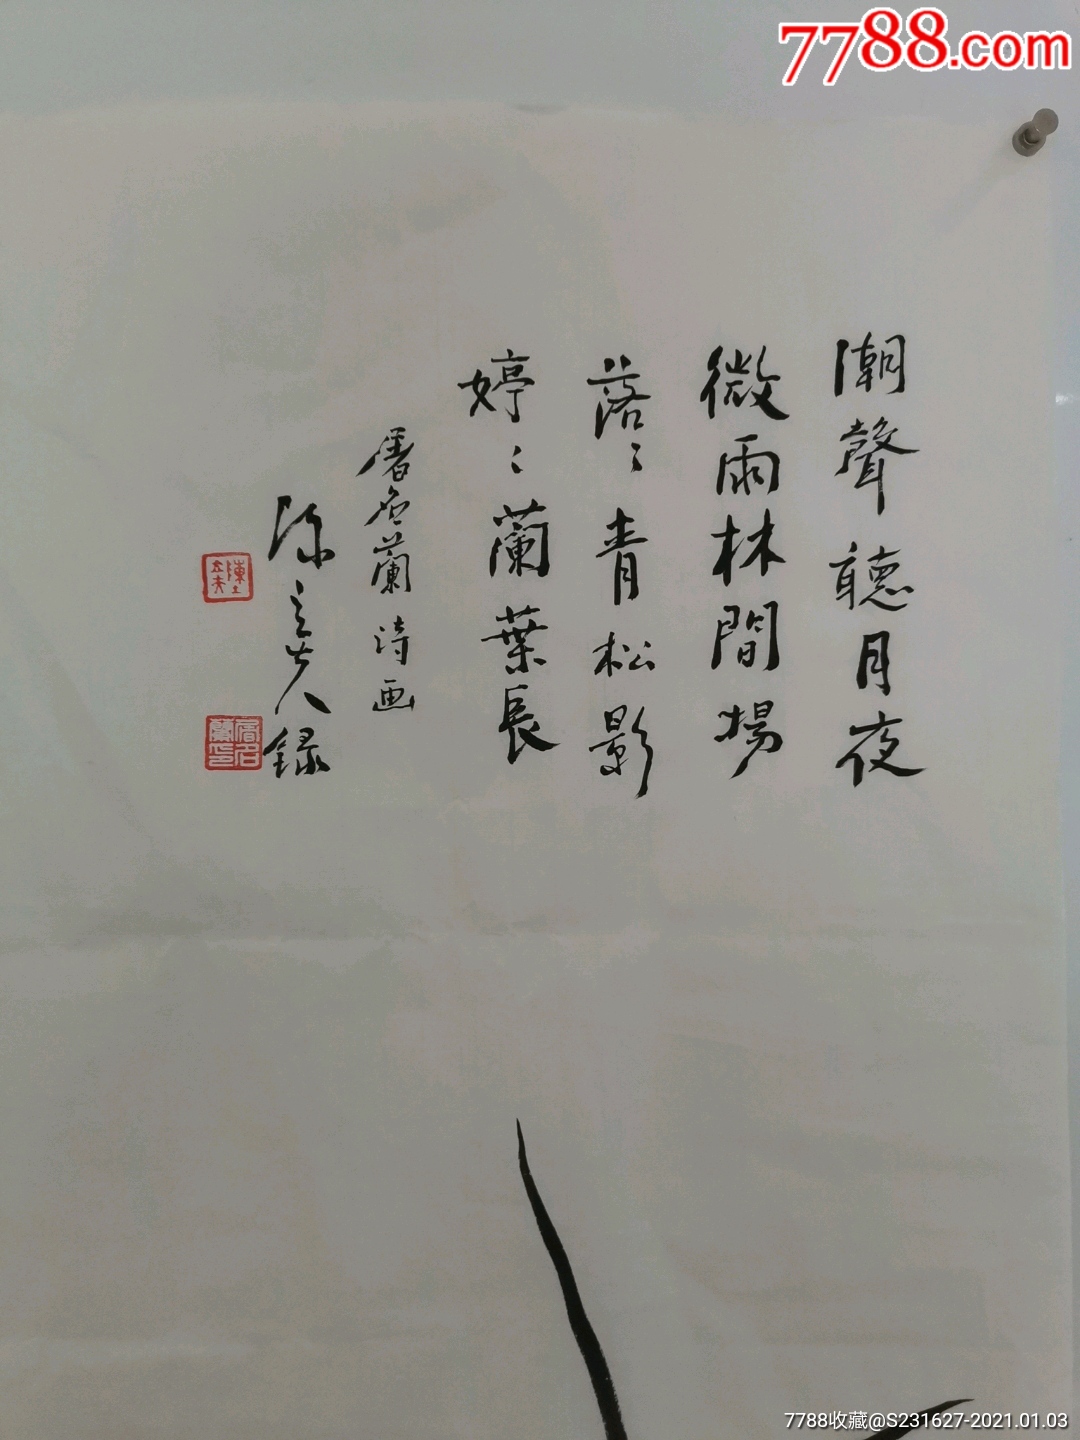 7788.com
潮聲聽月夜
微雨林間場
落〻青松影
婷〻蘭葉長
屠名蘭詩画
陳立人録
屠名蘭印
7788收藏@S231627-2021.01.03